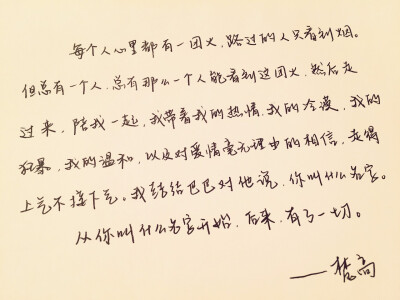 每个人心里都有一团火，路过的人只看到烟。
但总有一个人，总有那么一个人能看到这团火，然后走
过来，陪我一起，我带着我的热情，我的冷漠，我的
狂暴，我的温和，以及对爱情毫无理由的相信，走得
上气不接下气。我结结巴巴对他说，你叫什么名字。
从你叫什么名字开始，后来，有了一切。
——梵高